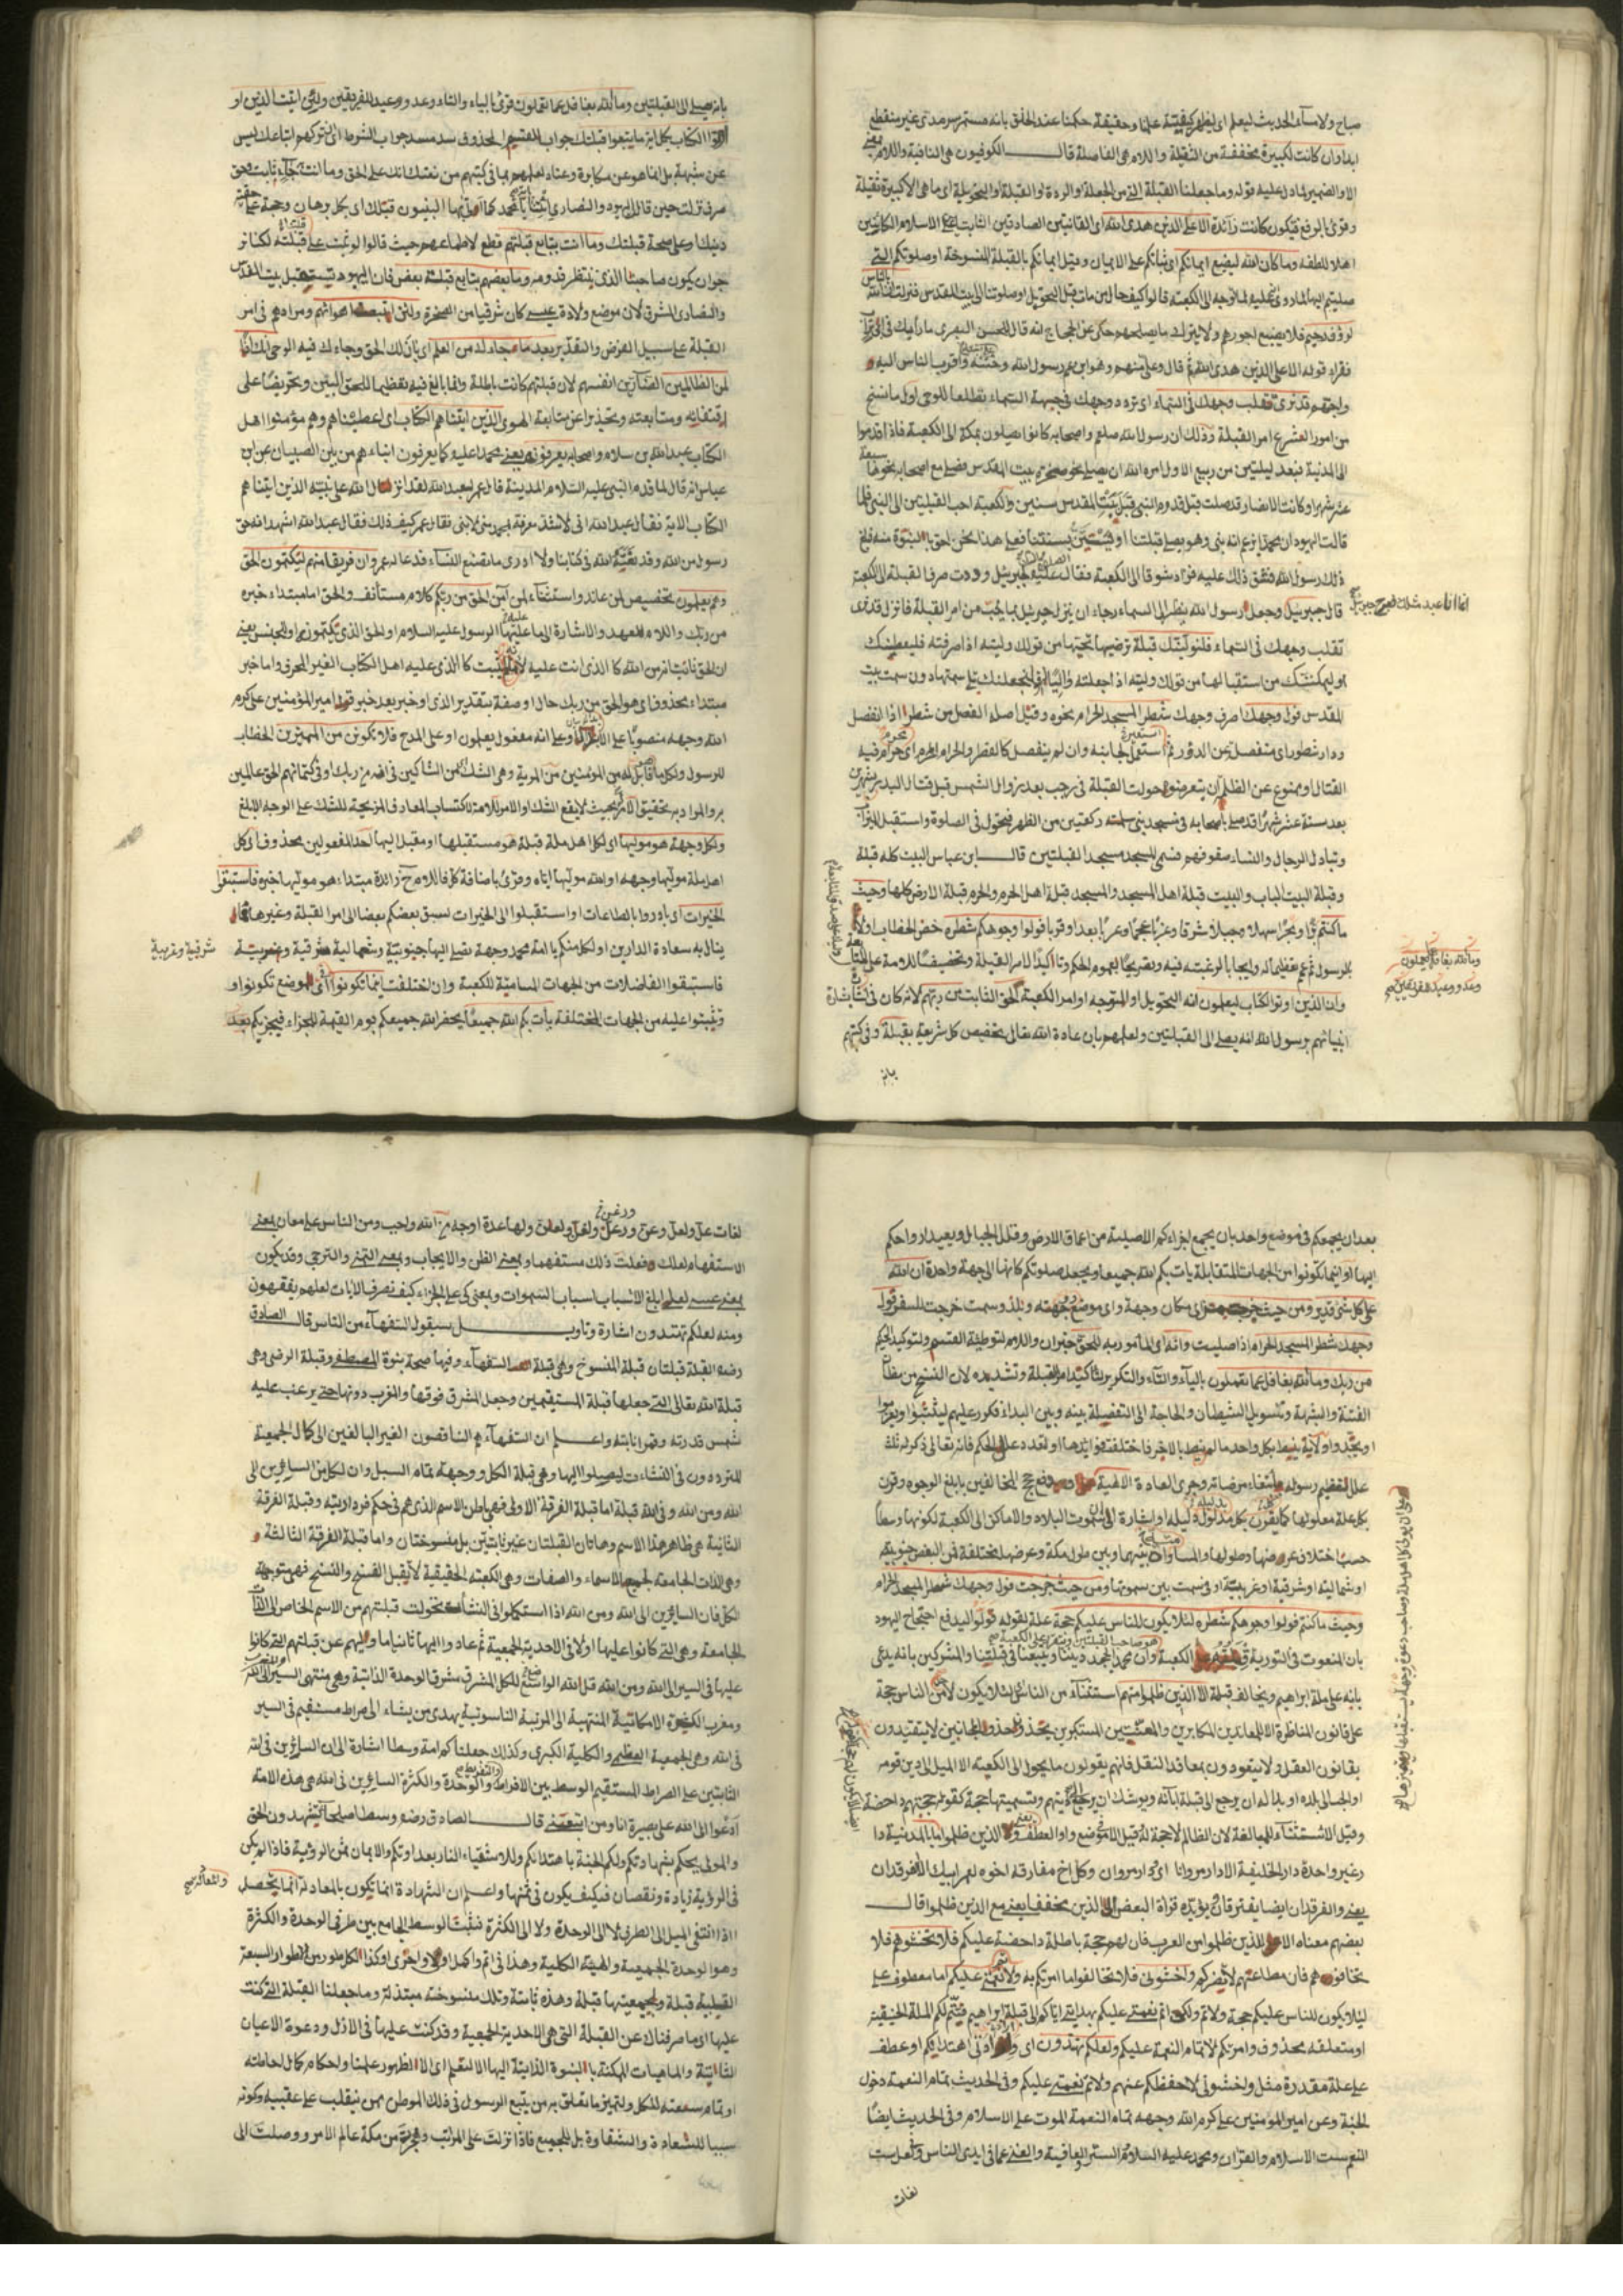 صباح ولا مساء الحديث ليعلم اى ليظهر كيفيته علما وحقيقة حكمنا عند الخلق بانه مستمر سرمدى غير منقطع
ابدا وان كانت لكبيرة مخففة من الثقيلة واللام هى الفاصلة قال الكوفيون هى النافية واللام بمعنى
الا والضمير لما دل عليه قوله وما جعلنا القبلة التى من الجعلة او الردة او القبلة او التحويلة اى ما هى الا كبيرة ثقيلة
وقرئ بالرفع فيكون كانت زائدة الا على الذين هدى الله اى القانتين الصادقين الثابتين على الاسلام
اهلا للطفه وما كان الله ليضيع ايمانكم اى ثباتكم على الايمان وقيل ايمانكم بالقبلة المنسوخة او صلوتكم التى
صليتم اليها لما روى انه عليه لما توجه الى الكعبة قالوا كيف حال من مات قبل التحويل او صلوتنا الى بيت المقدس فنزلت ان الله بالناس
لرؤف رحيم فلا يضيع اجورهم ولا يترك ما يصلحهم حكى عن الحجاج انه قال للحسن البصرى ما رأيك فى ابى تراب
فقراء قوله الا على الذين هدى الله ثم قال وعلى منهم وهو ابن عم رسول الله وختنه واقرب الناس اليه
واحبهم قد نرى تقلب وجهك فى السماء اى تردد وجهك فى جهة السماء تطلعا للوحى اول ما نسخ
من امور الشرع امر القبلة وذلك ان رسول الله صلعم واصحابه كانوا يصلون بمكة الى الكعبة فاذا قدموا
الى المدينة فبعد ليلتين من ربيع الاول امره الله ان يصلى نحو صخرة بيت المقدس فصلى مع اصحابه نحوها سبعة
عشر شهرا وكانت الانصار قد صلت قبل قدوم النبى قبل بيت المقدس سنين والكعبة احب القبلتين الى النبى فلما
قالت اليهود ان محمدا يزعم انه نبى وهو يصلى قبلتنا او يستن بسنتنا فعلى هذا نحن احق بالنبوة منه فبلغ
ذلك رسول الله فشق ذلك عليه فزاد شوقا الى الكعبة فقال عليه لجبرئيل وددت صرف القبلة الى الكعبة
قال جبرئيل انما انا عبد مثلك وجعل رسول الله ينظر الى السماء رجاء ان ينزل جبرئيل بما يحب من امر القبلة فانزل قد نرى
تقلب وجهك فى السماء فلنولينك قبلة ترضيها تحبها من قولك وليته اذا صرفته فليعطينك
او ليمكننك من استقبالها من قولك وليته اذا جعلته واليا فلنجعلنك تلى سمتها دون سمت بيت
المقدس فول وجهك اصرف وجهك شطر المسجد الحرام نحوه وقيل اصله الفصل من شطر اذا انفصل
ودار شطور اى منفصلة عن الدور ثم استعير لجانبه وان لم ينفصل كالقطر والحرام المحرم اى حرام فيه
القتال او ممنوع عن الظلمة ان يتعرضوه حولت القبلة فى رجب بعد زوال الشمس قبل قتال البدر بشهرين
بعد ستة عشر شهرا قد صلى باصحابه فى مسجد بنى سلمة ركعتين من الظهر فتحول فى الصلوة واستقبل الميزاب
وتبادل الرجال والنساء صفوفهم فسمى المسجد مسجد القبلتين قال ابن عباس البيت كله قبلة
وقبلة البيت الباب والبيت قبلة اهل المسجد والمسجد قبلة اهل الحرم والحرم قبلة الارض كلها وحيث
ما كنتم برا وبحرا سهلا وجبلا شرقا وغربا عجما وعربا بعدا وقربا فولوا وجوهكم شطره خص الخطاب اولا
بالرسول ثم عم تعظيما له وايجابا لرغبته فيه وتصريحا بعموم الحكم وتاكيدا لامر القبلة وتخفيفا للامة على المتابعة
وان الذين اوتوا الكتاب ليعلمون انه التحويل او المتوجه او امر الكعبة الحق الثابت من ربهم لانه كان فى بشارة
انبيائهم برسول الله انه يصلى الى القبلتين ولعلمهم بان عادة الله تعالى تخصيص كل شريعة بقبلة وفى كتبهم
بانه
وما الله بغافل عما يعملون
وعد ووعيد للفريقين
بانه يصلى الى القبلتين وما الله بغافل عما تعملون قرئ بالياء والتاء وعد ووعيد للفريقين ولئن اتيت الذين او
توا الكتاب بكل اية ما تبعوا قبلتك جواب للقسم المحذوف سد مسد جواب الشرط اى تركهم اتباعك ليس
عن شبهة بل انما هو عن مكابرة وعناد لعلمهم بما فى كتبهم من نعتك انك على الحق وما انت
صرف نزلت حين قال اليهود والنصارى ائتنا بآية يا محمد كما اتى بها النبيون قبلك اى بكل برهان وحجة على حقية
دينك وعلى صحة قبلتك وما انت بتابع قبلتهم قطع لاطماعهم حيث قالوا لو ثبت على قبلتنا لكنا نر
جوا ان يكون صاحبنا الذى ننتظر قدومه وما بعضهم بتابع قبلة بعض فان اليهود تستقبل بيت المقدس
والنصارى المشرق لان موضع ولادة عيسى كان شرقيا من الصخرة ولئن اتبعت اهوائهم ومرادهم فى امر
القبلة على سبيل الفرض والتقدير بعد ما جاءك من العلم اى بان لك الحق وجاءك فيه الوحى انك اذا
لمن الظالمين الضارين انفسهم لان قبلتهم كانت باطلة وانما بالغ فيه تعظيما للحق المبين وتحريضا على
اقتفائه ومتابعته وتحذيرا عن متابعة الهوى الذين اتيناهم الكتاب اى اعطيناهم وهم مؤمنوا اهل
الكتاب عبد الله بن سلام واصحابه يعرفونه يعنى محمدا عليه كما يعرفون ابناءهم من بين الصبيان عن ابن
عباس انه قال لما قدم النبى عليه السلام المدينة قال عمر لعبد الله لقد انزل الله على نبيه الذين اتيناهم
الكتاب الاية فقال عبد الله انى لاشد معرفة لمحمد منى لابنى فقال عمر كيف ذلك فقال عبد الله اشهد انه حق
رسول من الله وقد نعته الله فى كتابنا ولا ادرى ما تصنع النساء فدعا له عمر وان فريقا منهم ليكتمون الحق
وهم يعلمون تخصيص لمن عاند واستثناء لمن آمن الحق من ربك كلام مستأنف والحق اما مبتداء خبره
من ربك واللام للعهد والاشارة الى ما عليه الرسول عليه السلام او الحق الذى يكتمونه او للجنس يعنى
ان الحق ما ثبت انه من الله كالذى انت عليه لا ما لم يثبت كالذى عليه اهل الكتاب الغير المحرف واما خبر
مبتداء محذوف اى هو الحق من ربك حال او صفة بتقدير الذى او خبر بعد خبر قرء امير المؤمنين على كرم
الله وجهه منصوبا على الاغراء او على انه مفعول يعلمون او على المدح فلا تكونن من الممترين الخطاب
للرسول ولكل ما قابل له من المؤمنين من المرية وهى الشك اى من الشاكين فى انه من ربك او فى كتمانهم الحق عالمين
به والمراد به تحقيق الامر بحيث لا يقع الشك او الامر للامة لاكتساب المعارف المزيحة للشك على الوجه الابلغ
ولكل وجهة هو موليها اى لكل اهل ملة قبلة هو مستقبلها او مقبل اليها احد المفعولين محذوف اى كل
اهل ملة موليها وجهه او الله موليها اياه وقرئ باضافة كل فاللام ح زائدة مبتداء هو موليها خبره فاستبقوا
الخيرات اى بادروا بالطاعات او استقبلوا الى الخيرات يسبق بعضكم بعضا الى امر القبلة وغيرها مما
ينال به سعادة الدارين او لكل منكم يا امة محمد وجهة يصلى اليها جنوبية وشمالية شرقية وغربية
شرقية وغربية
فاستبقوا الفاضلات من الجهات المسامتة للكعبة وان اختلفت اينما تكونوا اى موضع تكونوا و
وتثبتوا عليه من الجهات المختلفة يأت بكم الله جميعا يحضر الله جميعكم يوم القيمة للجزاء فيجزيكم بعد
بعد ان يجمعكم فى موضع واحد بان يجمع اجزاءكم الاصلية من اعماق الارض وقلل الجبال ويعيد ارواحكم
اليها او اينما تكونوا من الجهات المتقابلة يات بكم الله جميعا ويجعل صلوتكم كانها الى جهة واحدة ان الله
على كل شئ قدير ومن حيث خرجت من اى مكان وجهة واى موضع وجهته وبلد وسمت خرجت للسفر فول
وجهك شطر المسجد الحرام اذا صليت وانه اى المأمور به للحق خبر ان واللام لتوطئة القسم ولتوكيد الحكم
من ربك وما الله بغافل عما تعملون بالياء والتاء والتكرير لتأكيد امر القبلة وتشديده لان النسخ من مظان
الفتنة والشبهة وتسويل الشيطان والحاجة الى التفصلة بينه وبين البداء فكرر عليهم ليثبتوا ويعزموا
او يجدوا ولانه ينيط بكل واحد ما لم ينيط بالاخر فاختلفت فوايدها او لتعدد علل الحكم فانه تعالى ذكر له ثلث
علل تعظيم رسوله بابتغاء مرضاته وجرى العادة الالهية ودفع حجج المخالفين بابلغ الوجوه وقرن
بكل علة معلولها كما يقرن بكل مدلول دليله او اشارة الى سموت البلاد والاماكن الى الكعبة لكونها وسطا
حسب اختلاف عروضها وطولها والمساواة بينهما وبين طول مكة وعرضها مختلفة فى البعض جنوبية
او شمالية او شرقية او غربية او فى سمت بين سموتها ومن حيث خرجت فول وجهك شطر المسجد الحرام
وحيث ما كنتم فولوا وجوهكم شطره لئلا يكون للناس عليكم حجة علة لقوله فولوا ليدفع احتجاج اليهود
بان المنعوت فى التورية قبلته الكعبة وان محمدا يجحد ديننا ويتبعنا فى قبلتنا والمشركين بانه يدعى
بانه على ملة ابراهيم ويخالف قبلة الا الذين ظلموا منهم استثناء من الناس لئلا يكون لاحد من الناس حجة
على قانون المناظرة الا للمعاندين المكابرين والمعنتين المستكبرين لا يتقيدون
بقانون العقل ولا ينقودون بمعاقد النقل فانهم يقولون ما يحول الى الكعبة الا الميل الى دين قومه
او الحب الى بلده او بدا له ان يرجع الى قبلة آبائه ويوشك ان يرجع الى دينهم وتسميتها حجة كقوله حجتهم داحضة
وقيل الاستثناء للمبالغة لان الظالم لا حجة له قيل الا موضع واو العطف الذين ظلموا ما بالمدينة دا
ر غير واحدة دار الخليفة الا دار مروانا اى ودار مروان وكل اخ مفارقه اخوه لعمر ابيك الا الفرقدان
يعنى والفرقدان ايضا يفترقان يؤيده قراة البعض الى الذين مخففا يعنى مع الذين ظلموا قال
بعضهم معناه الا الذين ظلموا من العرب فان لهم حجة باطلة داحضة عليكم فلا تخشوهم فلا
تخافوهم فان مطاعتهم لا يضركم واخشونى فلا تخالفوا ما امرتكم به ولاتم نعمتى عليكم اما معطوف على
لئلا يكون للناس عليكم حجة ولاتم ولكى اتم نعمتى عليكم بهدايتى اياكم الى قبلة ابراهيم فيتم لكم الملة الحنيفية
او متعلقه محذوف وامرتكم لاتمام النعمة عليكم ولعلكم تهتدون اى وارادتى اهتدائكم او عطف
على علة مقدرة مثل واخشونى لاحفظكم عنهم ولاتم نعمتى عليكم وفى الحديث تمام النعمة دخول
الجنة وعن امير المؤمنين على كرم الله وجهه تمام النعمة الموت على الاسلام وفى الحديث ايضا
النعم ست الاسلام والقران ومحمد عليه السلام والستر والعافية والغنى عما فى ايدى الناس ولعل ست
لغات
لغات عل ولعل وعن ورعن ولغن ولعلن ولها عدة اوجه من الله واجب ومن الناس على معان بمعنى
الاستفهام لعلك فعلت ذلك مستفهما وبمعنى الظن والايجاب وبمعنى التمنى والترجى وقد يكون
بمعنى عسى لعلى ابلغ الاسباب اسباب السموات وبمعنى كى على الجزاء كيف نصرف الايات لعلهم يفقهون
ومنه لعلكم تهتدون اشارة وتاويل سيقول السفهاء من الناس قال الصادق
رضه القبلة قبلتان قبلة المنسوخ وهى قبلة السفهاء وفيها صحة نبوة المصطفى وقبلة الرضى وهى
قبلة الله تعالى التى جعلها قبلة المستقيمين وجعل المشرق فوقها والمغرب دونها حتى يرغب عليه
شمس قدرته وقمر انابته واعلم ان السفهاء هم الناقصون الغير البالغين الى كمال الجمعية
المترددون فى النشاءت ليصلوا اليها وهى قبلة الكل ووجهة تمام السبل وان لكل من السايرين الى
الله ومن الله وفى الله قبلة اما قبلة الفرقة الاولى فهى باطن الاسم الذى هم فى حكم فردانيته وقبلة الفرقة
الثانية هى ظاهر هذا الاسم وهاتان القبلتان غير ثابتتين بل منسوختان واما قبلة الفرقة الثالثة
وهى الذات الجامعة لجميع الاسماء والصفات وهى الكعبة الحقيقية لا يقبل الفسخ والنسخ فهى متوجهة
الكل فان السايرين الى الله ومن الله اذا استكملوا فى النشأت تحولت قبلتهم من الاسم الخاص الى الذات
الجامعة وهى التى كانوا عليها اولا فى الاحدية الجمعية ثم عادوا اليها ثانيا ما وليهم عن قبلتهم التى كانوا
عليها فى السير الى الله ومن الله قل لله الواسع للكل المشرق مشرق الوحدة الذاتية وهى منتهى السير الى الله
ومغرب الكثرة الامكانية المنتهية الى المرتبة الناسوتية يهدى من يشاء الى صراط مستقيم فى السير
فى الله وهى الجمعية العظمى والكلية الكبرى وكذلك جعلناكم امة وسطا اشارة الى ان السائرين فى الله
الثابتين على الصراط المستقيم الوسط بين الافراط والتفريط والوحدة والكثرة السائرين فى الله هى هذه الامة
ادعوا الى الله على بصيرة انا ومن اتبعنى قال الصادق رضه وسطا صلحاء تشهدون الحق
والمولى يحكم بشهادتكم ولكم الجنة باهتدائكم وللاشقياء النار بعداوتكم والايمان ثمن الرؤية فاذا لم يكن
فى الرؤية زيادة ونقصان فكيف يكون فى ثمنها واعلم ان الشهادة انما تكون بالمعادلة انما يحصل
اذا انتفى الميل الى الطرفى لا الى الوحدة ولا الى الكثرة فثبت الوسط الجامع بين طرفى الوحدة والكثرة
وهو الوحدة الجمعية والهيئة الكلية وهذا فى اتم واكمل اولى واحرى وكذا لكل طور من الاطوار السبعة
القلبية قبلة ولجمعيتها قبلة وهذه ثابتة وتلك منسوخة مبتذلة وما جعلنا القبلة التى كنت
عليها اى ما صرفناك عن القبلة التى هى الاحدية الجمعية وقد كنت عليها فى الازل ودعوة الاعيان
الثابتة والماهيات الممكنة بالنبوة الذاتية اليها الا لنعلم اى الا لظهور علمنا واحكام كمال احاطته
وتمام سعته للكل ولتميز ما تعلق به من يتبع الرسول فى ذلك الموطن ممن ينقلب على عقبيه وكونه
سببا للسعادة والشقاوة بل للجميع فاذا نزلت على المراتب وهجرت من مكة عالم الامر ووصلت الى